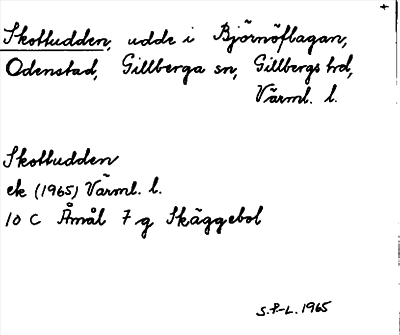 +
Skottudden, udde i Björnöflagan,
Odenstad, Gillberga sn, Gillbergs hd,
Värml. l.
Skottudden
ek (1965) Värml. l.
10 C Åmål 7 g Skäggebol
S.P-L. 1965